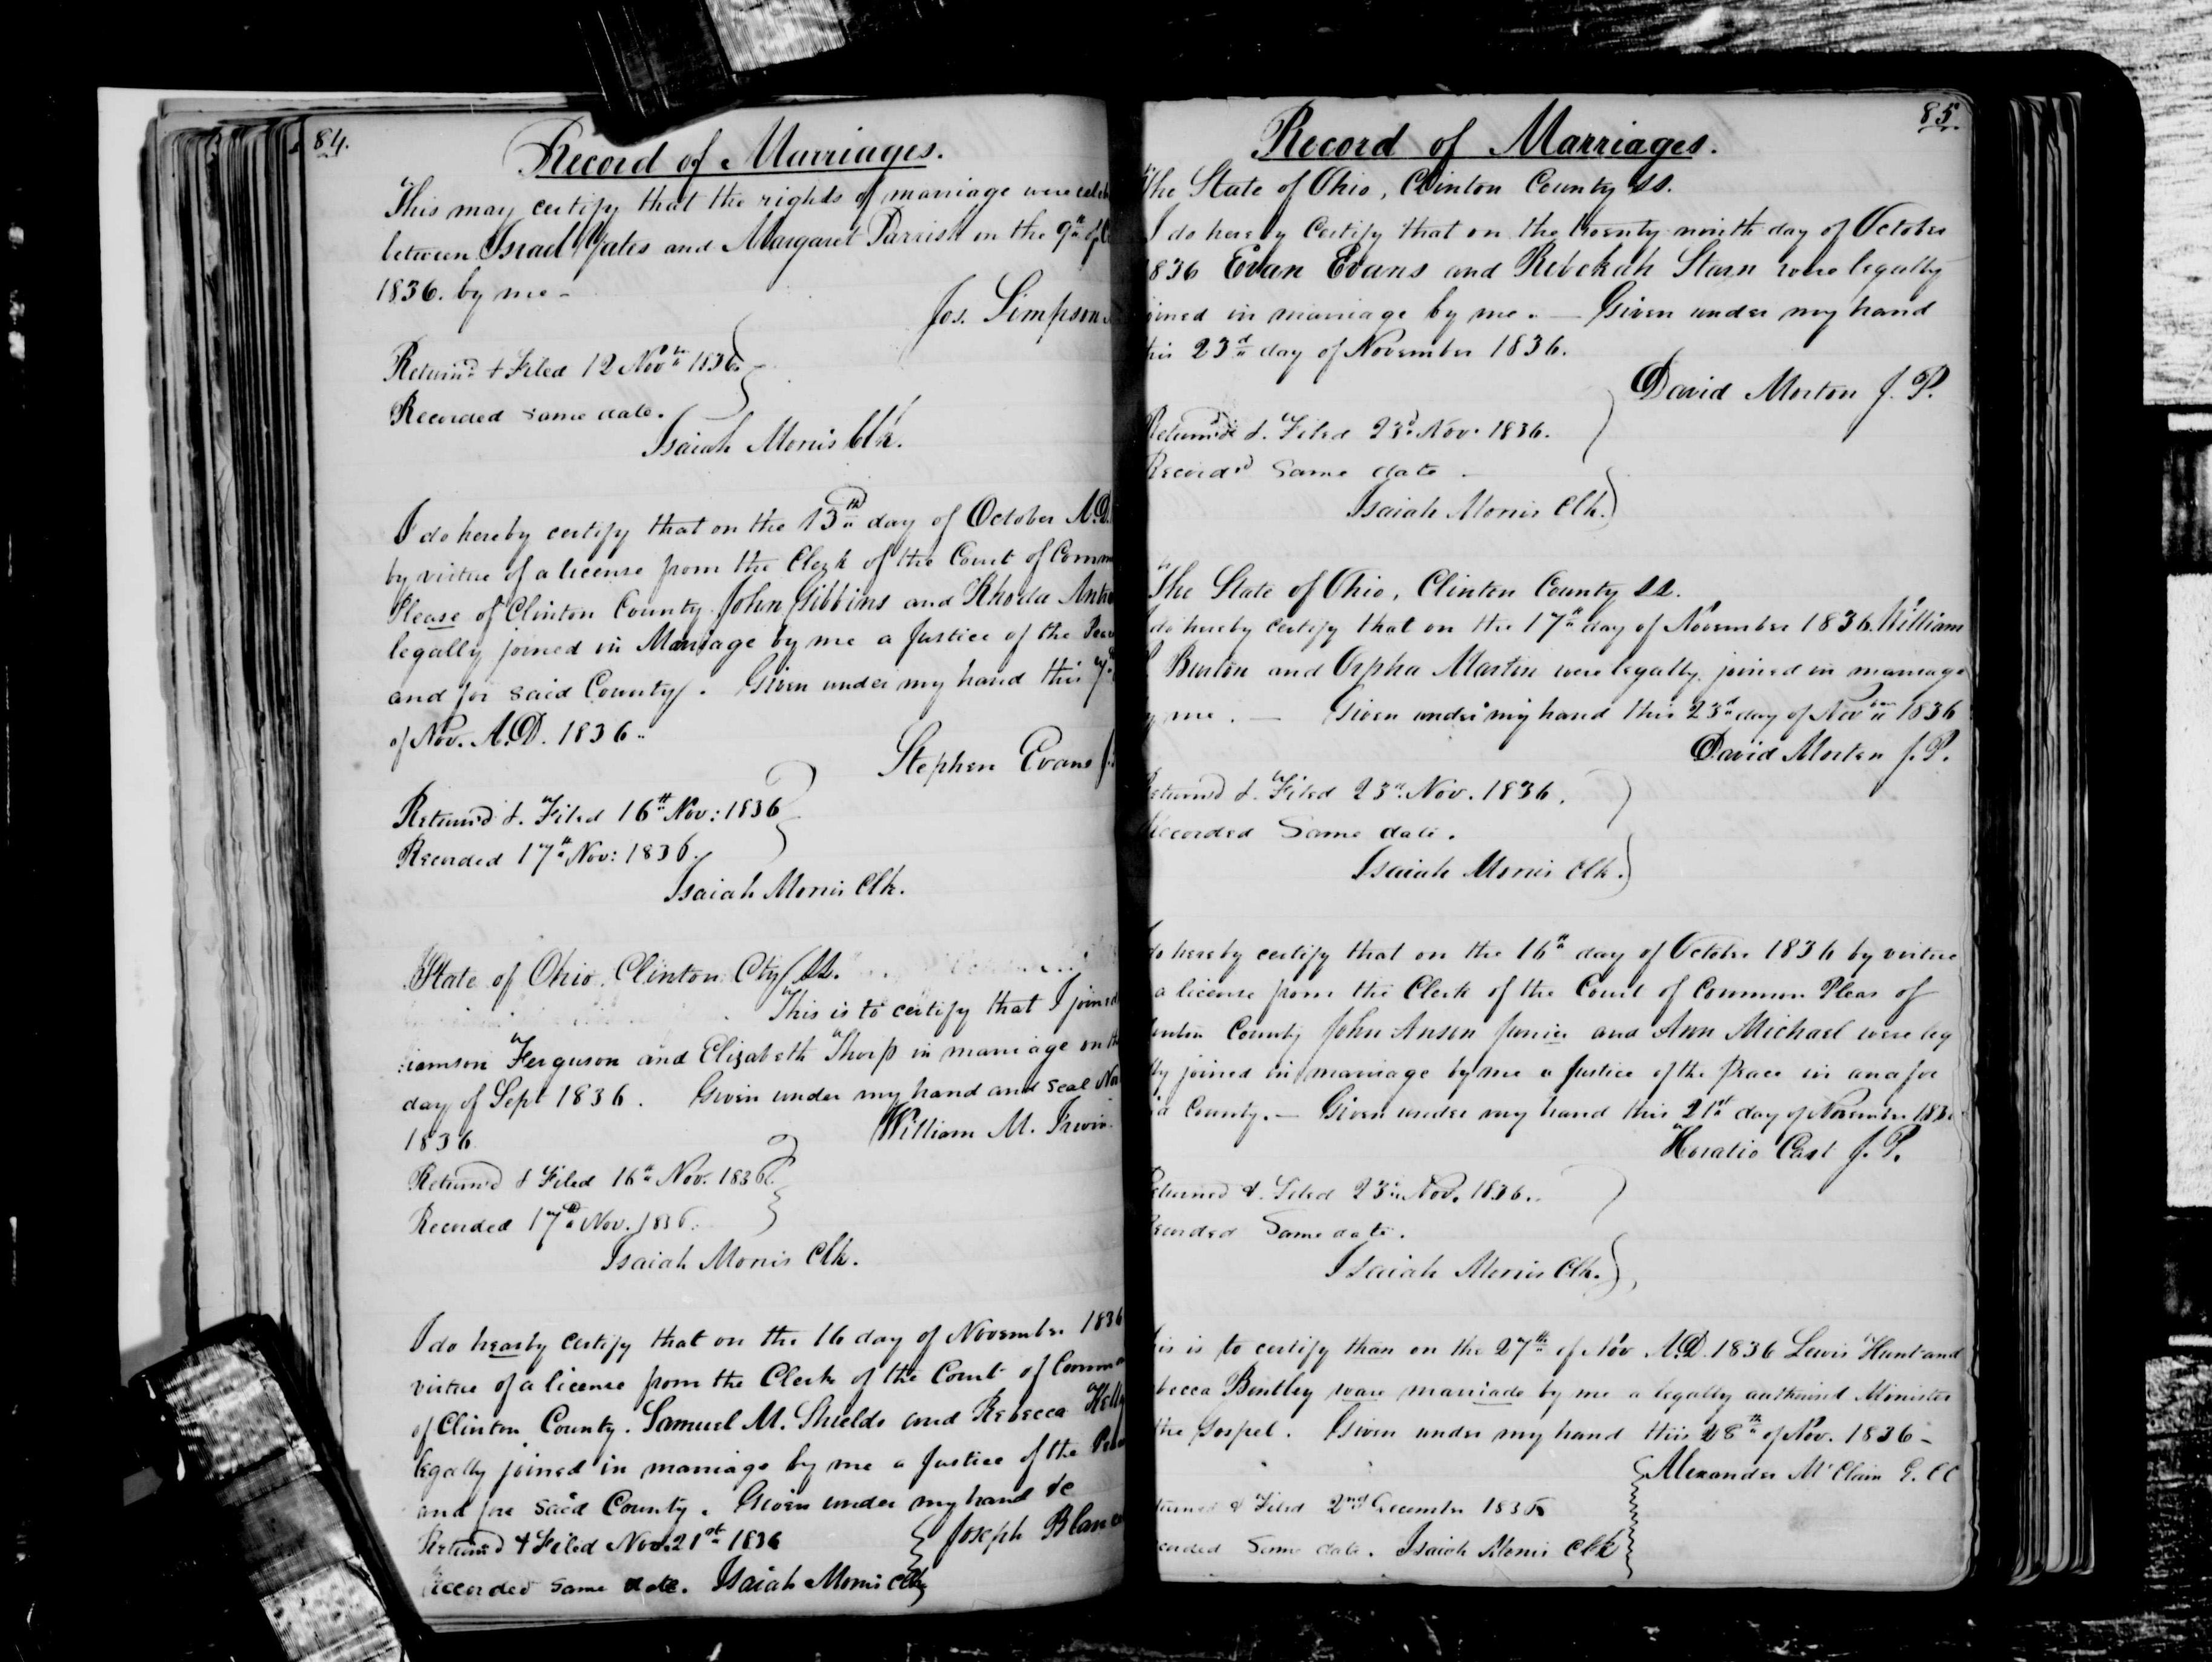 84.
Record of Marriages.
This may certify that the rights of marriage were
between Israel Yates and Margaret Parrish on the 9th of
1836. by me -
Jos. Simpson
Returnd & Filed 12 Novbr 1836.
Recorded same date.
Isaiah Morris Clk.
I do hereby certify that on the 13th day of October A.D.
by virtue of a license from the Clerk of the Court of Comm
Please of Clinton County John Gibbins and Rhoda Antr
legally joined in Marriage by me a Justice of the Pea
and for said County. Given under my hand this 7
of Nov. A.D. 1836.
Stephen Evans J.
Returnd & Filed 16th Nov: 1836
Recorded 17th Nov: 1836.
Isaiah Morris Clk.
State of Ohio Clinton Cty ss.
This is to certify that I joined
iamson Ferguson and Elizabeth Thorp in marriage on th
day of Sept 1836. Given under my hand and seal
1836
William M. Irwin
Returnd & Filed 16th Nov. 1836.
Recorded 17th Nov. 1836.
Isaiah Morris Clk.
I do hearby certify that on the 16 day of November 1836
virtue of a license from the Clerk of the Court of Comm
of Clinton County. Samuel M. Shields and Rebecca Kelly
legally joined in marriage by me a Justice of the Pea
and fore said County. Given under my hand &c
Joseph Blan
Returnd & Filed Nov. 21st 1836
Recorded same date. Isaiah Morris Clk
85.
Record of Marriages.
The State of Ohio, Clinton County ss.
I do hereby Certify that on the twenty ninth day of October
1836 Evan Evans and Rebekah Starn were legally
joined in marriage by me. — Given under my hand
this 23d day of November 1836.
David Morton J. P.
Returnd & Filed 23d Nov. 1836.
Recordd Same date -
Isaiah Morris Clk.
The State of Ohio, Clinton County ss.
do hereby certify that on the 17th day of November 1836. William
Burton and Orpha Martin were legally joined in marriage
y me. — Given under my hand this 23d day of Novbr 1836
David Morton J. P.
eturnd & Filed 23d Nov. 1836.
Recorded Same date.
Isaiah Morris Clk.
do hereby certify that on the 16th day of October 1836 by virtue
a license from the Clerk of the Court of Common Pleas of
inton County John Anson Junior and Ann Michael were leg
lly joined in marriage by me a Justice of the Peace in and for
id County. — Given under my hand this 21st day of November 183
Horatio Cast J. P.
eturned & Filed 23d Nov. 1836.
ecorded Same date.
Isaiah Morris Clk.
his is to certify than on the 27th of Nov A.D. 1836 Lewis Hunt and
becca Bentley ware marriade by me a legally authorisd Minister
the Gospel. Given under my hand this 28th of Nov. 1836 -
Alexander McClain
turned & Filed 2nd December 1836
corded Same date. Isaiah Morris Clk